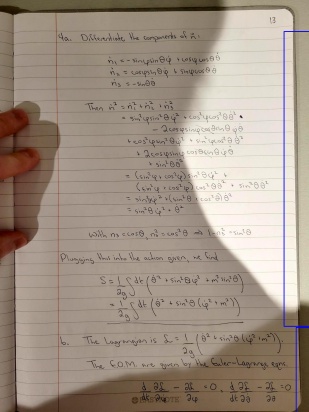 13
4a. Differentiate the components of n̂:
ṅ₁ = -sinφsinθφ̇ + cosφcosθθ̇
ṅ₂ = cosφsinθφ̇ + sinφcosθθ̇
ṅ₃ = -sinθθ̇
Then ṅ² = ṅ₁² + ṅ₂² + ṅ₃²
= sin²φsin²θφ̇² + cos²φcos²θθ̇²
- 2cosφsinφcosθsinθφ̇θ̇
+ cos²φsin²θφ̇² + sin²φcos²θθ̇²
+ 2cosφsinφcosθsinθφ̇θ̇
+ sin²θθ̇²
= (sin²φ + cos²φ)sin²θφ̇² +
(sin²φ + cos²φ)cos²θθ̇² + sin²θθ̇²
= sin²θφ̇² + (sin²θ + cos²θ)θ̇²
= sin²θφ̇² + θ̇²
With n₃ = cosθ, n₃² = cos²θ ⇒ 1-n₃² = sin²θ
Plugging this into the action given, we find
S = 1/2g ∫dt (θ̇² + sin²θφ̇² + m²sin²θ)
= 1/2g ∫dt (θ̇² + sin²θ(φ̇² + m²))
b. The Lagrangian is L = 1/2g (θ̇² + sin²θ(φ̇² + m²))
The E.O.M. are given by the Euler-Lagrange eqns.
d/dt ∂L/∂φ̇ - ∂L/∂φ = 0, d/dt ∂L/∂θ̇ - ∂L/∂θ = 0